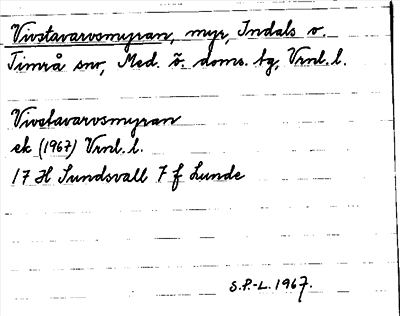 Vivstavarvsmyran, myr, Indals o.
Timrå snv, Med. ö. doms. tg, Vrnl. l.
Vivstavarvsmyran
ek (1967) Vrnl. l.
17 H Sundsvall 7 f Lunde
S.P.-L. 1967.